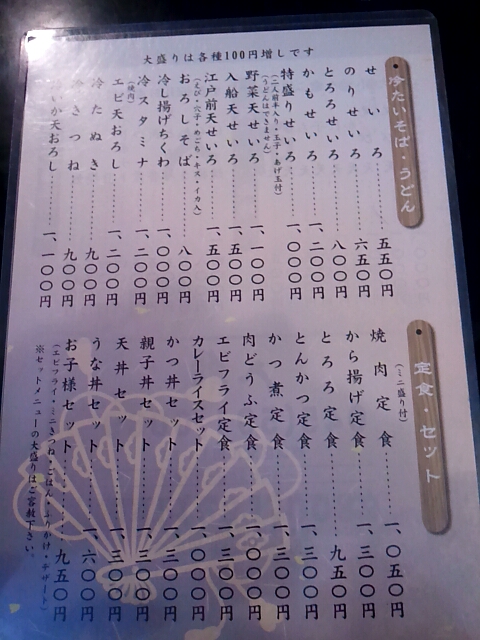 大盛りは各種100円増しです
冷たいそば・うどん
せいろ 五五〇円
のりせいろ 六五〇円
とろろせいろ 八〇〇円
かもせいろ 一、二〇〇円
特盛りせいろ 一、〇〇〇円
(二人前半入り・玉子・あげ玉付)
(うどんはできません)
野菜天せいろ 一、一〇〇円
入船天せいろ 一、五〇〇円
江戸前天せいろ 一、五〇〇円
(えび・穴子・めごち・キス・イカ入)
おろしそば 八〇〇円
冷し揚げちくわ 一、〇〇〇円
冷スタミナ 一、二〇〇円
(焼肉)
エビ天おろし 一、二〇〇円
冷たぬき 九〇〇円
冷きつね 九〇〇円
いか天おろし 一、一〇〇円
定食・セット
(ミニ盛り付)
焼肉定食 一、〇五〇円
から揚げ定食 一、三〇〇円
とろろ定食 九五〇円
とんかつ定食 一、三〇〇円
かつ煮定食 一、三〇〇円
肉どうふ定食 一、〇〇〇円
エビフライ定食 一、三〇〇円
カレーライスセット 一、〇〇〇円
かつ丼セット 一、三〇〇円
親子丼セット 一、三〇〇円
天丼セット 一、三〇〇円
うな丼セット 一、六〇〇円
お子様セット 九五〇円
(エビフライ・ミニきつね・ごはん・ふりかけ・デザート)
※セットメニューの大盛りはご容赦下さい。